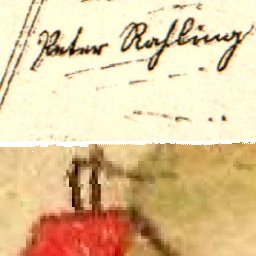 Peter Rahling